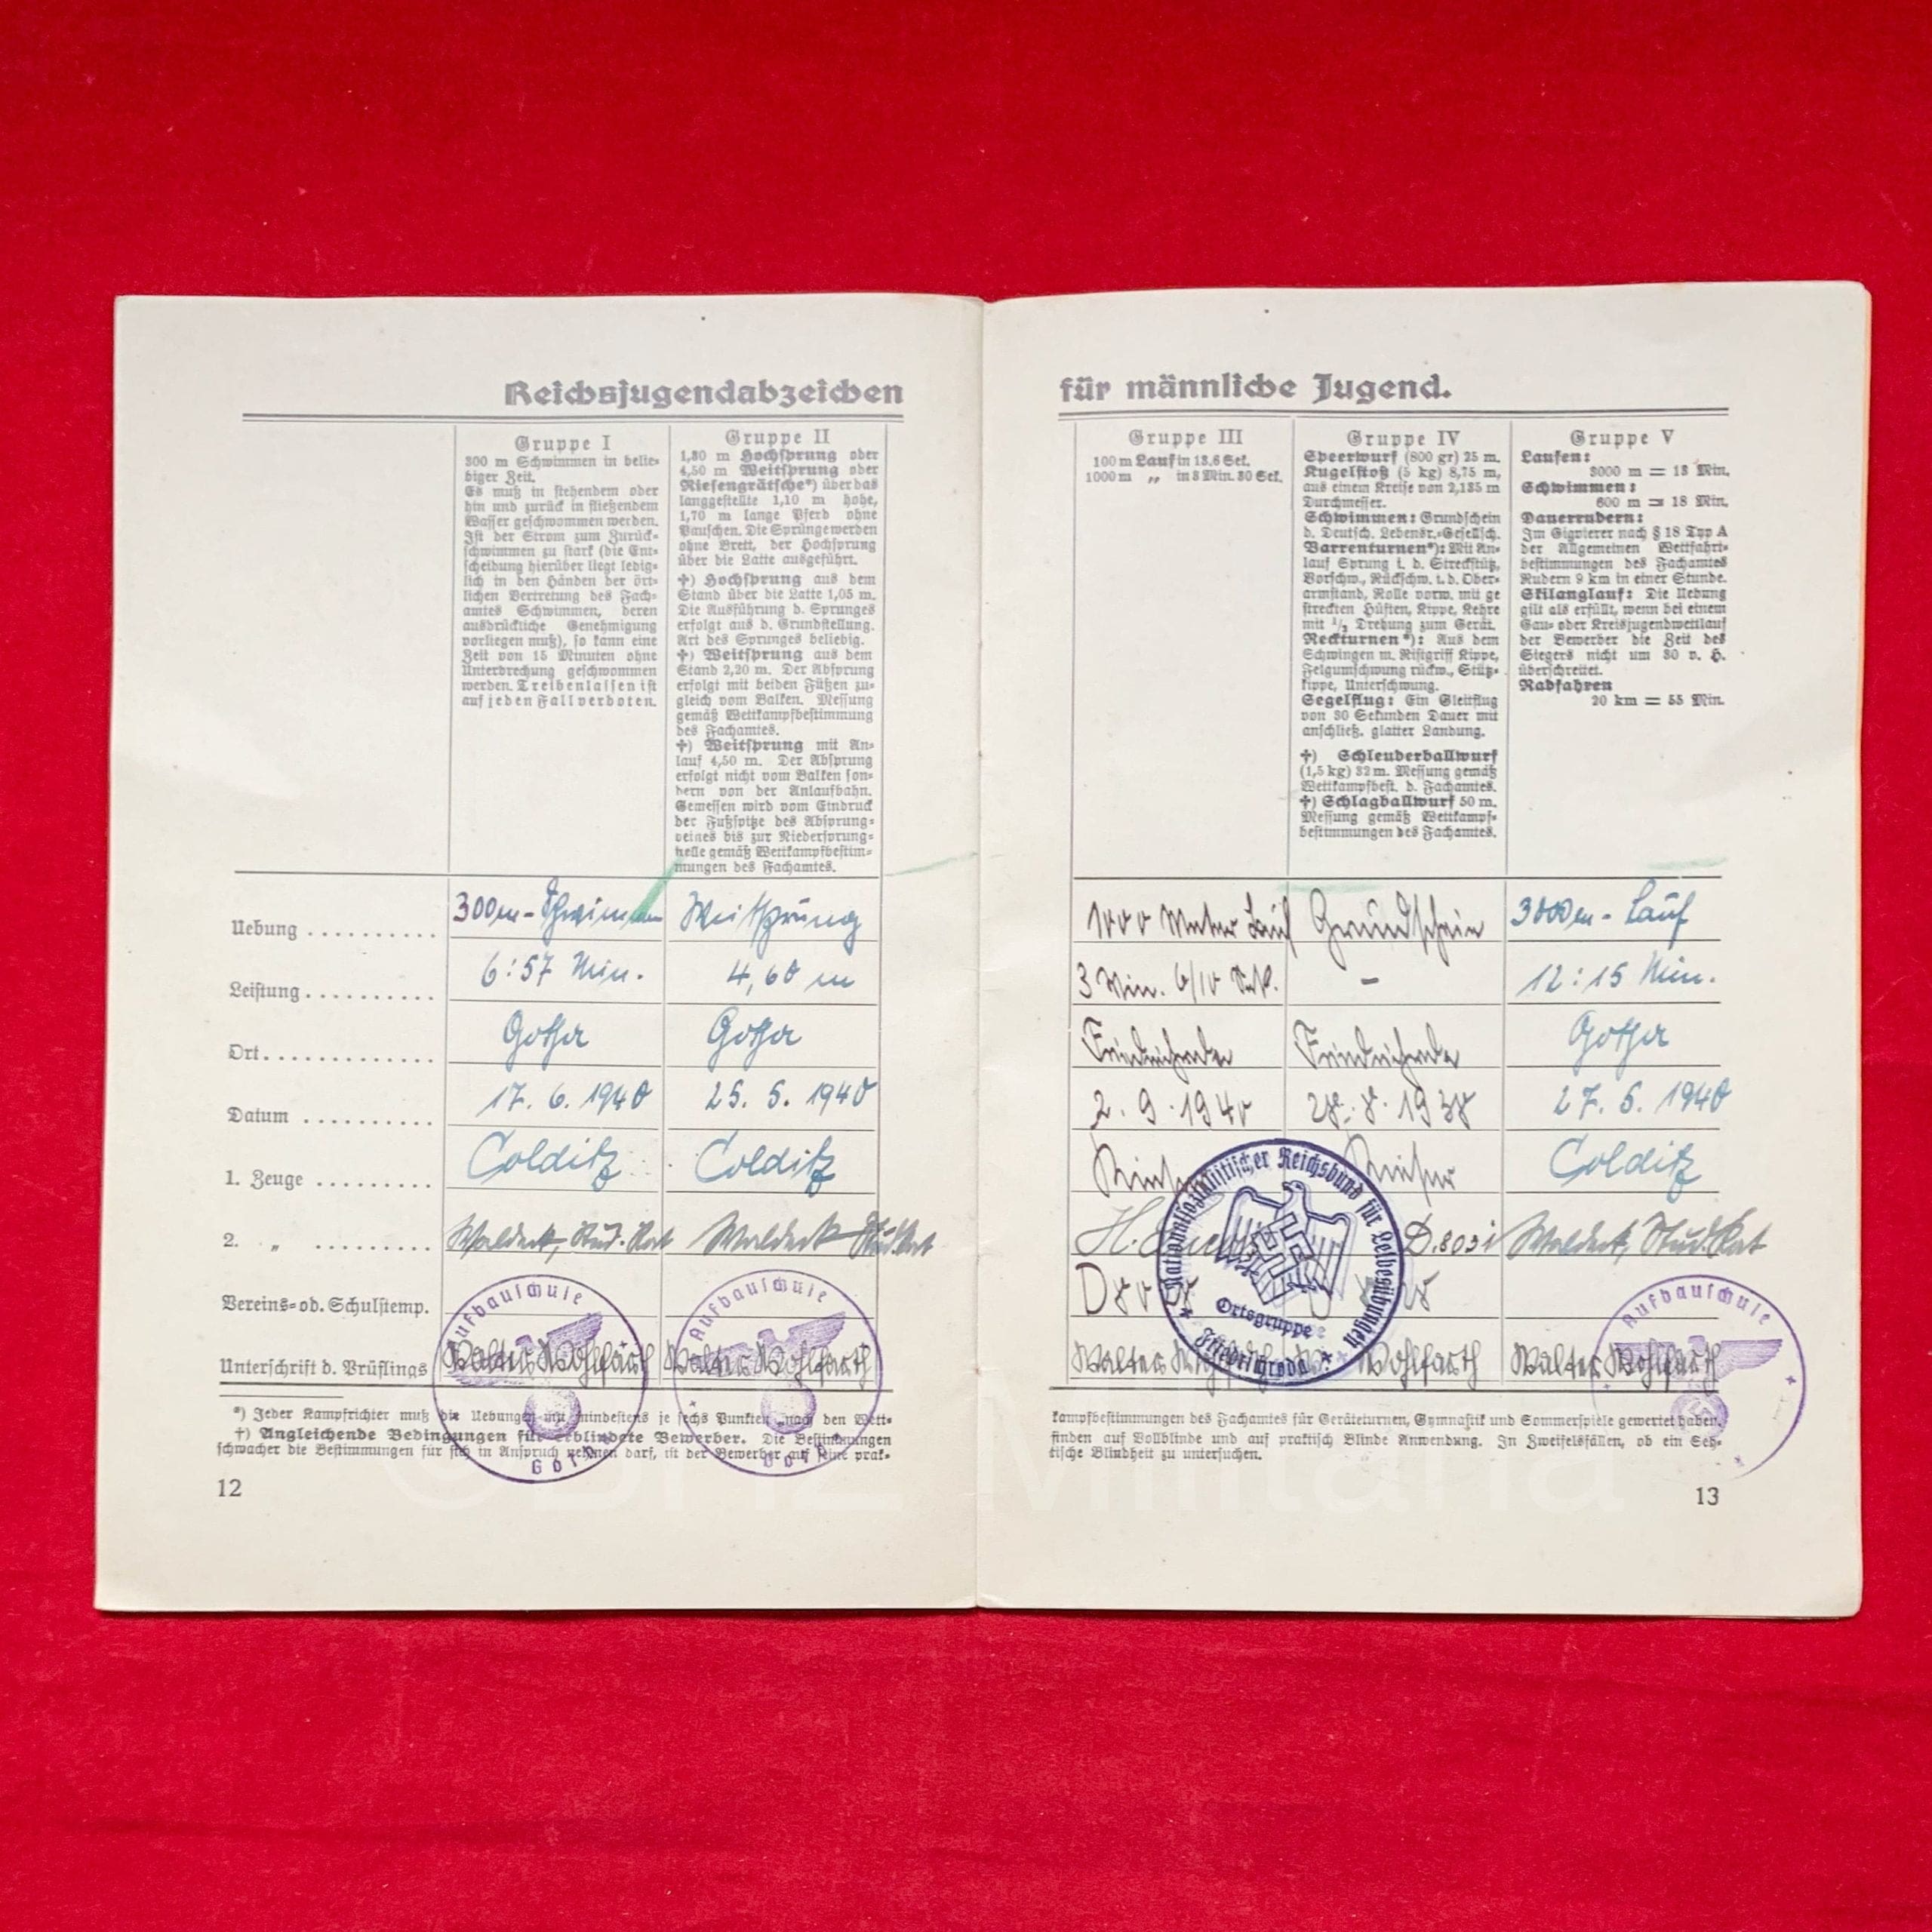 Reichsjugendabzeichen
Gruppe I
300 m Schwimmen in belie-
biger Zeit.
Es muß in stehendem oder
hin und zurück in fließendem
Wasser geschwommen werden.
Ist der Strom zum Zurück-
schwimmen zu stark (die Ent-
scheidung hierüber liegt ledig-
lich in den Händen der ört-
lichen Vertretung des Fach-
amtes Schwimmen, deren
ausdrückliche Genehmigung
vorliegen muß), so kann eine
Zeit von 15 Minuten ohne
Unterbrechung geschwommen
werden. Treibenlassen ist
auf jeden Fall verboten.
Gruppe II
1,30 m Hochsprung oder
4,50 m Weitsprung oder
Riesengrätsche*) über das
langgestellte 1,10 m hohe,
1,70 m lange Pferd ohne
Pauschen. Die Sprünge werden
ohne Brett, der Hochsprung
über die Latte ausgeführt.
†) Hochsprung aus dem
Stand über die Latte 1,05 m.
Die Ausführung d. Sprunges
erfolgt aus d. Grundstellung.
Art des Sprunges beliebig.
†) Weitsprung aus dem
Stand 2,20 m. Der Absprung
erfolgt mit beiden Füßen zu-
gleich vom Balken. Messung
gemäß Wettkampfbestimmung
des Fachamtes.
†) Weitsprung mit An-
lauf 4,50 m. Der Absprung
erfolgt nicht vom Balken son-
dern von der Anlaufbahn.
Gemessen wird vom Eindruck
der Fußspitze des Absprung-
beines bis zur Niedersprung-
stelle gemäß Wettkampfbestim-
mungen des Fachamtes.
Uebung .......... 300m-Schwimmen Weitsprung
Leistung .......... 6:57 Min. 4,60 m
Ort ............. Gotha Gotha
Datum .......... 17. 6. 1940 25. 5. 1940
1. Zeuge ......... Colditz Colditz
2. „ ......... Waldeck, Stud. Rat Waldeck Stud. Rat
Vereins- od. Schulstemp.
Aufbauschule Gotha
Aufbauschule Gotha
Unterschrift d. Prüflings Walter Wohlfarth Walter Wohlfarth
*) Jeder Kampfrichter muß die Uebungen mit mindestens je sechs Punkten nach den Wett-
†) Angleichende Bedingungen für erblindete Bewerber. Die Bestimmungen
schwacher die Bestimmungen für sich in Anspruch nehmen darf, ist der Bewerber auf seine prak-
12
für männliche Jugend.
Gruppe III
100 m Lauf in 13,6 Sek.
1000 m „ in 3 Min. 30 Sek.
Gruppe IV
Speerwurf (800 gr) 25 m.
Kugelstoß (5 kg) 8,75 m,
aus einem Kreise von 2,135 m
Durchmesser.
Schwimmen: Grundschein
d. Deutsch. Lebensr.-Gesellsch.
Barrenturnen*): Mit An-
lauf Sprung i. d. Streckstütz,
Vorschw., Rückschw. i. d. Ober-
armstand, Rolle vorw. mit ge
streckten Hüften, Kippe, Kehre
mit 1/2 Drehung zum Gerät.
Reckturnen*): Aus dem
Schwingen m. Ristgriff Kippe,
Felgumschwung rückw., Stütz-
kippe, Unterschwung.
Segelflug: Ein Gleitflug
von 30 Sekunden Dauer mit
anschließ. glatter Landung.
†) Schleuderballwurf
(1,5 kg) 32 m. Messung gemäß
Wettkampfbest. d. Fachamtes.
†) Schlagballwurf 50 m.
Messung gemäß Wettkampf-
bestimmungen des Fachamtes.
Gruppe V
Laufen:
3000 m = 13 Min.
Schwimmen:
600 m = 18 Min.
Dauerrudern:
Im Gigvierer nach § 18 Typ A
der Allgemeinen Wettfahrt-
bestimmungen des Fachamtes
Rudern 9 km in einer Stunde.
Skilanglauf: Die Uebung
gilt als erfüllt, wenn bei einem
Gau- oder Kreisjugendwettlauf
der Bewerber die Zeit des
Siegers nicht um 30 v. H.
überschreitet.
Radfahren
20 km = 55 Min.
1000 Meter Lauf Grundschein 3000m-Lauf
3 Min. 6/10 Sek. - 12:15 Min.
Friedrichroda Friedrichroda Gotha
2. 9. 1940 28. 8. 1938 27. 5. 1940
Colditz
Waldeck, Stud. Rat
Nationalsozialistischer Reichsbund für Leibesübungen
Ortsgruppe
Friedrichroda
Aufbauschule
Walter Wohlfarth Walter Wohlfarth
kampfbestimmungen des Fachamtes für Geräteturnen, Gymnastik und Sommerspiele gewertet haben.
finden auf Vollblinde und auf praktisch Blinde Anwendung. In Zweifelsfällen, ob ein Seh-
tische Blindheit zu untersuchen.
13
Militaria